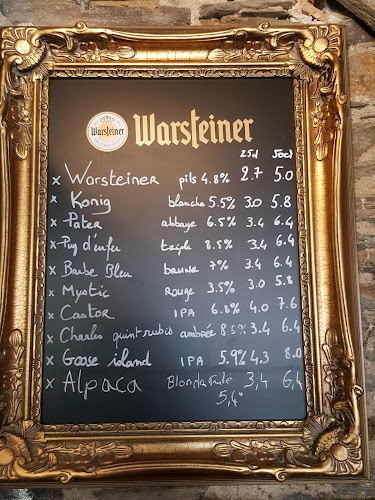 Warsteiner Warsteiner
25cl 50cl
x Warsteiner pils 4.8% 2.7 5.0
x Konig blanche 5.5% 3.0 5.8
x Pater abbaye 6.5% 3.4 6.4
x Puy d'enfer triple 8.5% 3.4 6.4
x Barbe Bleu brune 7% 3.4 6.4
x Mystic Rouge 3.5% 3.0 5.8
x Castor IPA 6.8% 4.0 7.6
x Charles quint rubis ambrée 8.5% 3.4 6.4
x Goose island IPA 5.9% 4.3 8.0
x Alpaca Blonde 3,4 6,4
5,4°